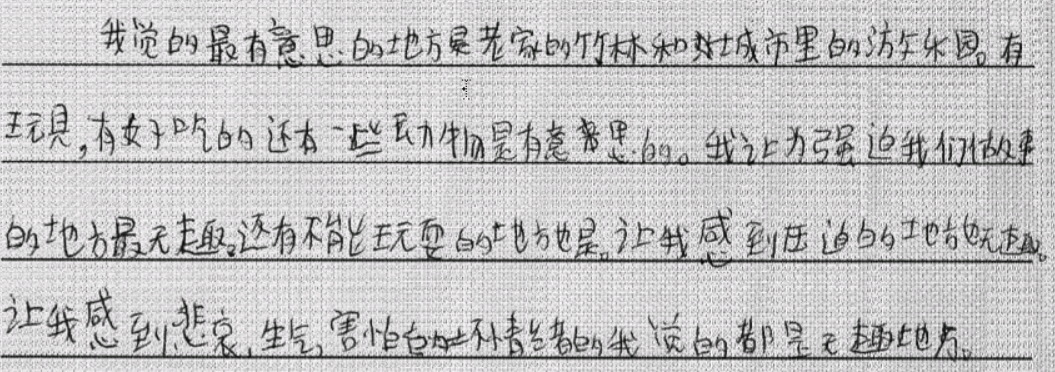 我觉的最有意思的地方是老家的竹林和城市里的游乐园。有
玩具,有好吃的还有一些动物是有意思的。我认为强迫我们做事
的地方最无趣,还有不能玩耍的地方也是。让我感到压迫的地方也无趣。
让我感到悲哀,生气,害怕的我觉的都是无趣地方。